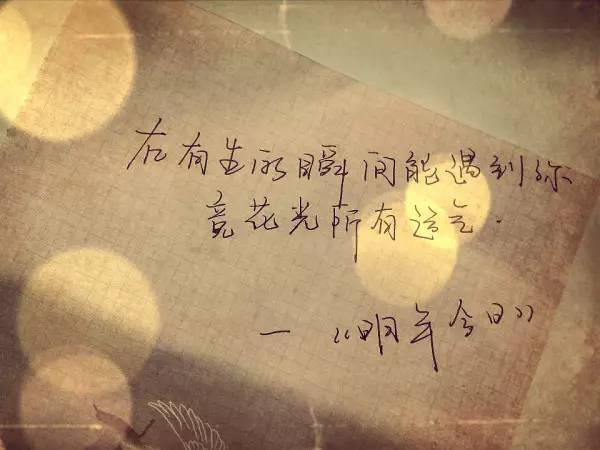 在有生的瞬间能遇到你
竟花光所有运气.
— “明年今日”